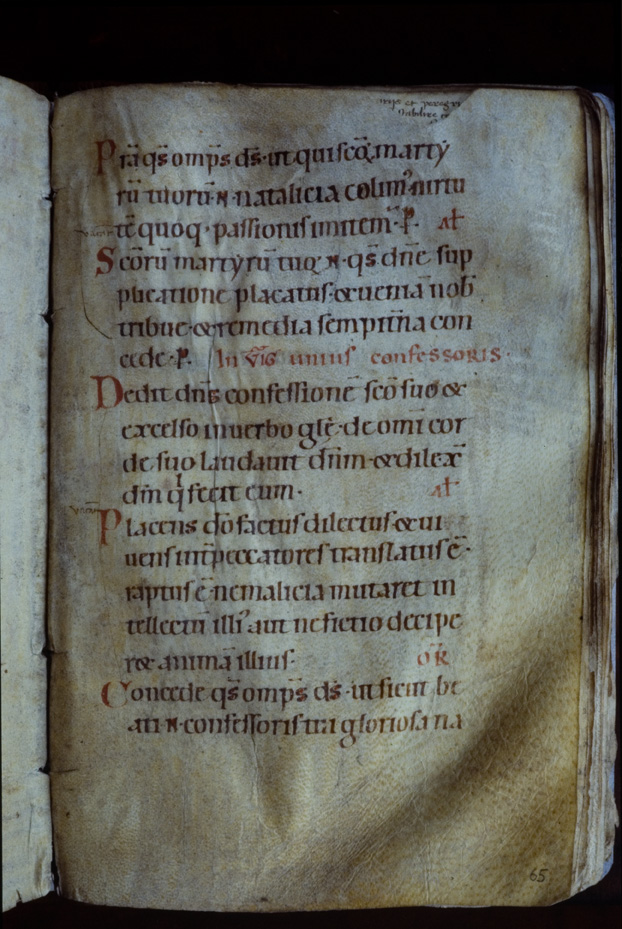 Pr̄a qs̄ omp̄s ds̄ · ut qui scōꝝ marty
rū tuorū · n · natalicia colim᷒ · uirtu
tē quoq · passionis imitem᷒ · p̄. Al̄
Scōrū martyrū tuoꝝ n · qs̄ dn̄e sup
plicatione placatus · & uenia nob̄
tribue · & remedia sempitn̄a con
cede · p̄. In vig̅ unius confessoris ·
Dedit dn̄s confessionē scō suo &
excelso in uerbo glē · de om̄i cor
de suo laudauit dn̄m · & dilex̄
dm̄ q̄ fecit eum · al̄
Placens dō factus dilectus & ui
uens int̄ peccatores translatus ē ·
raptus ē ne malicia mutaret in
tellectū illi᷒ aut ne fictio decipe
r& animā illius · or̄
Concede qs̄ omp̄s ds̄ · ut sicut be
ati n · confessoris tui gloriosa na
65